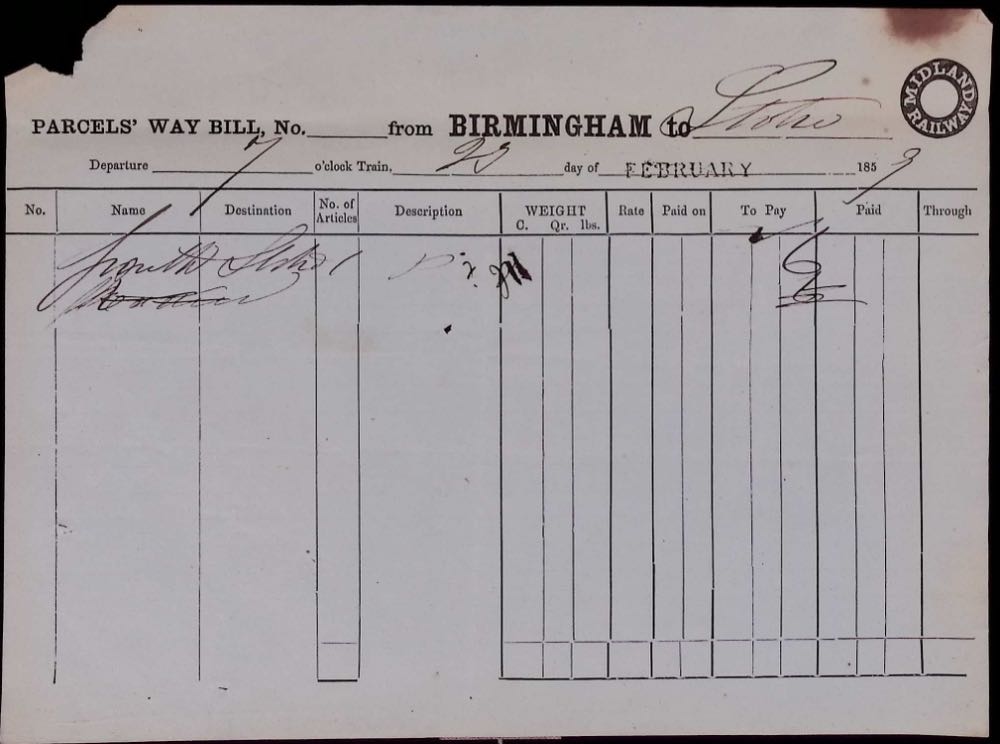 MIDLAND RAILWAY
PARCELS' WAY BILL, No. from BIRMINGHAM to Stoke
Departure 7 o'clock Train, day of FEBRUARY 1859
No. Name Destination No. of Articles Description WEIGHT C. Qr. lbs. Rate Paid on To Pay Paid Through
Stoke 1 6
6